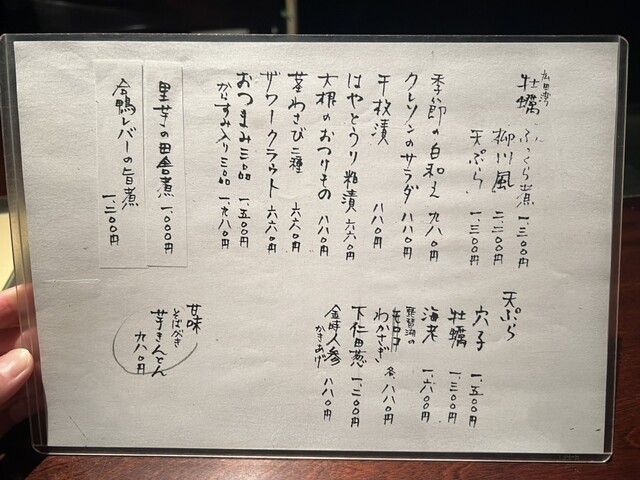 広田湾
牡蠣 ふっくら煮 一、三〇〇円
柳川風 二、二〇〇円
天ぷら 一、三〇〇円
季節の白和え 九八〇円
クレソンのサラダ 八八〇円
千枚漬 八八〇円
はやとうり粕漬 六六〇円
大根のおつけもの 八八〇円
茎わさび二種 六六〇円
ザワークラウト 六六〇円
おつまみ三品 一、五〇〇円
からすみ入り三品 一、九八〇円
里芋の田舎煮 一、〇〇〇円
合鴨レバーの旨煮 一、二〇〇円
天ぷら
穴子 一、五〇〇円
牡蠣 一、三〇〇円
海老 一、六〇〇円
琵琶湖の
わかさぎ 各、八八〇円
下仁田葱 一、二〇〇円
金時人参
かきあげ 八八〇円
甘味
そばがき
芋きんとん
九八〇円